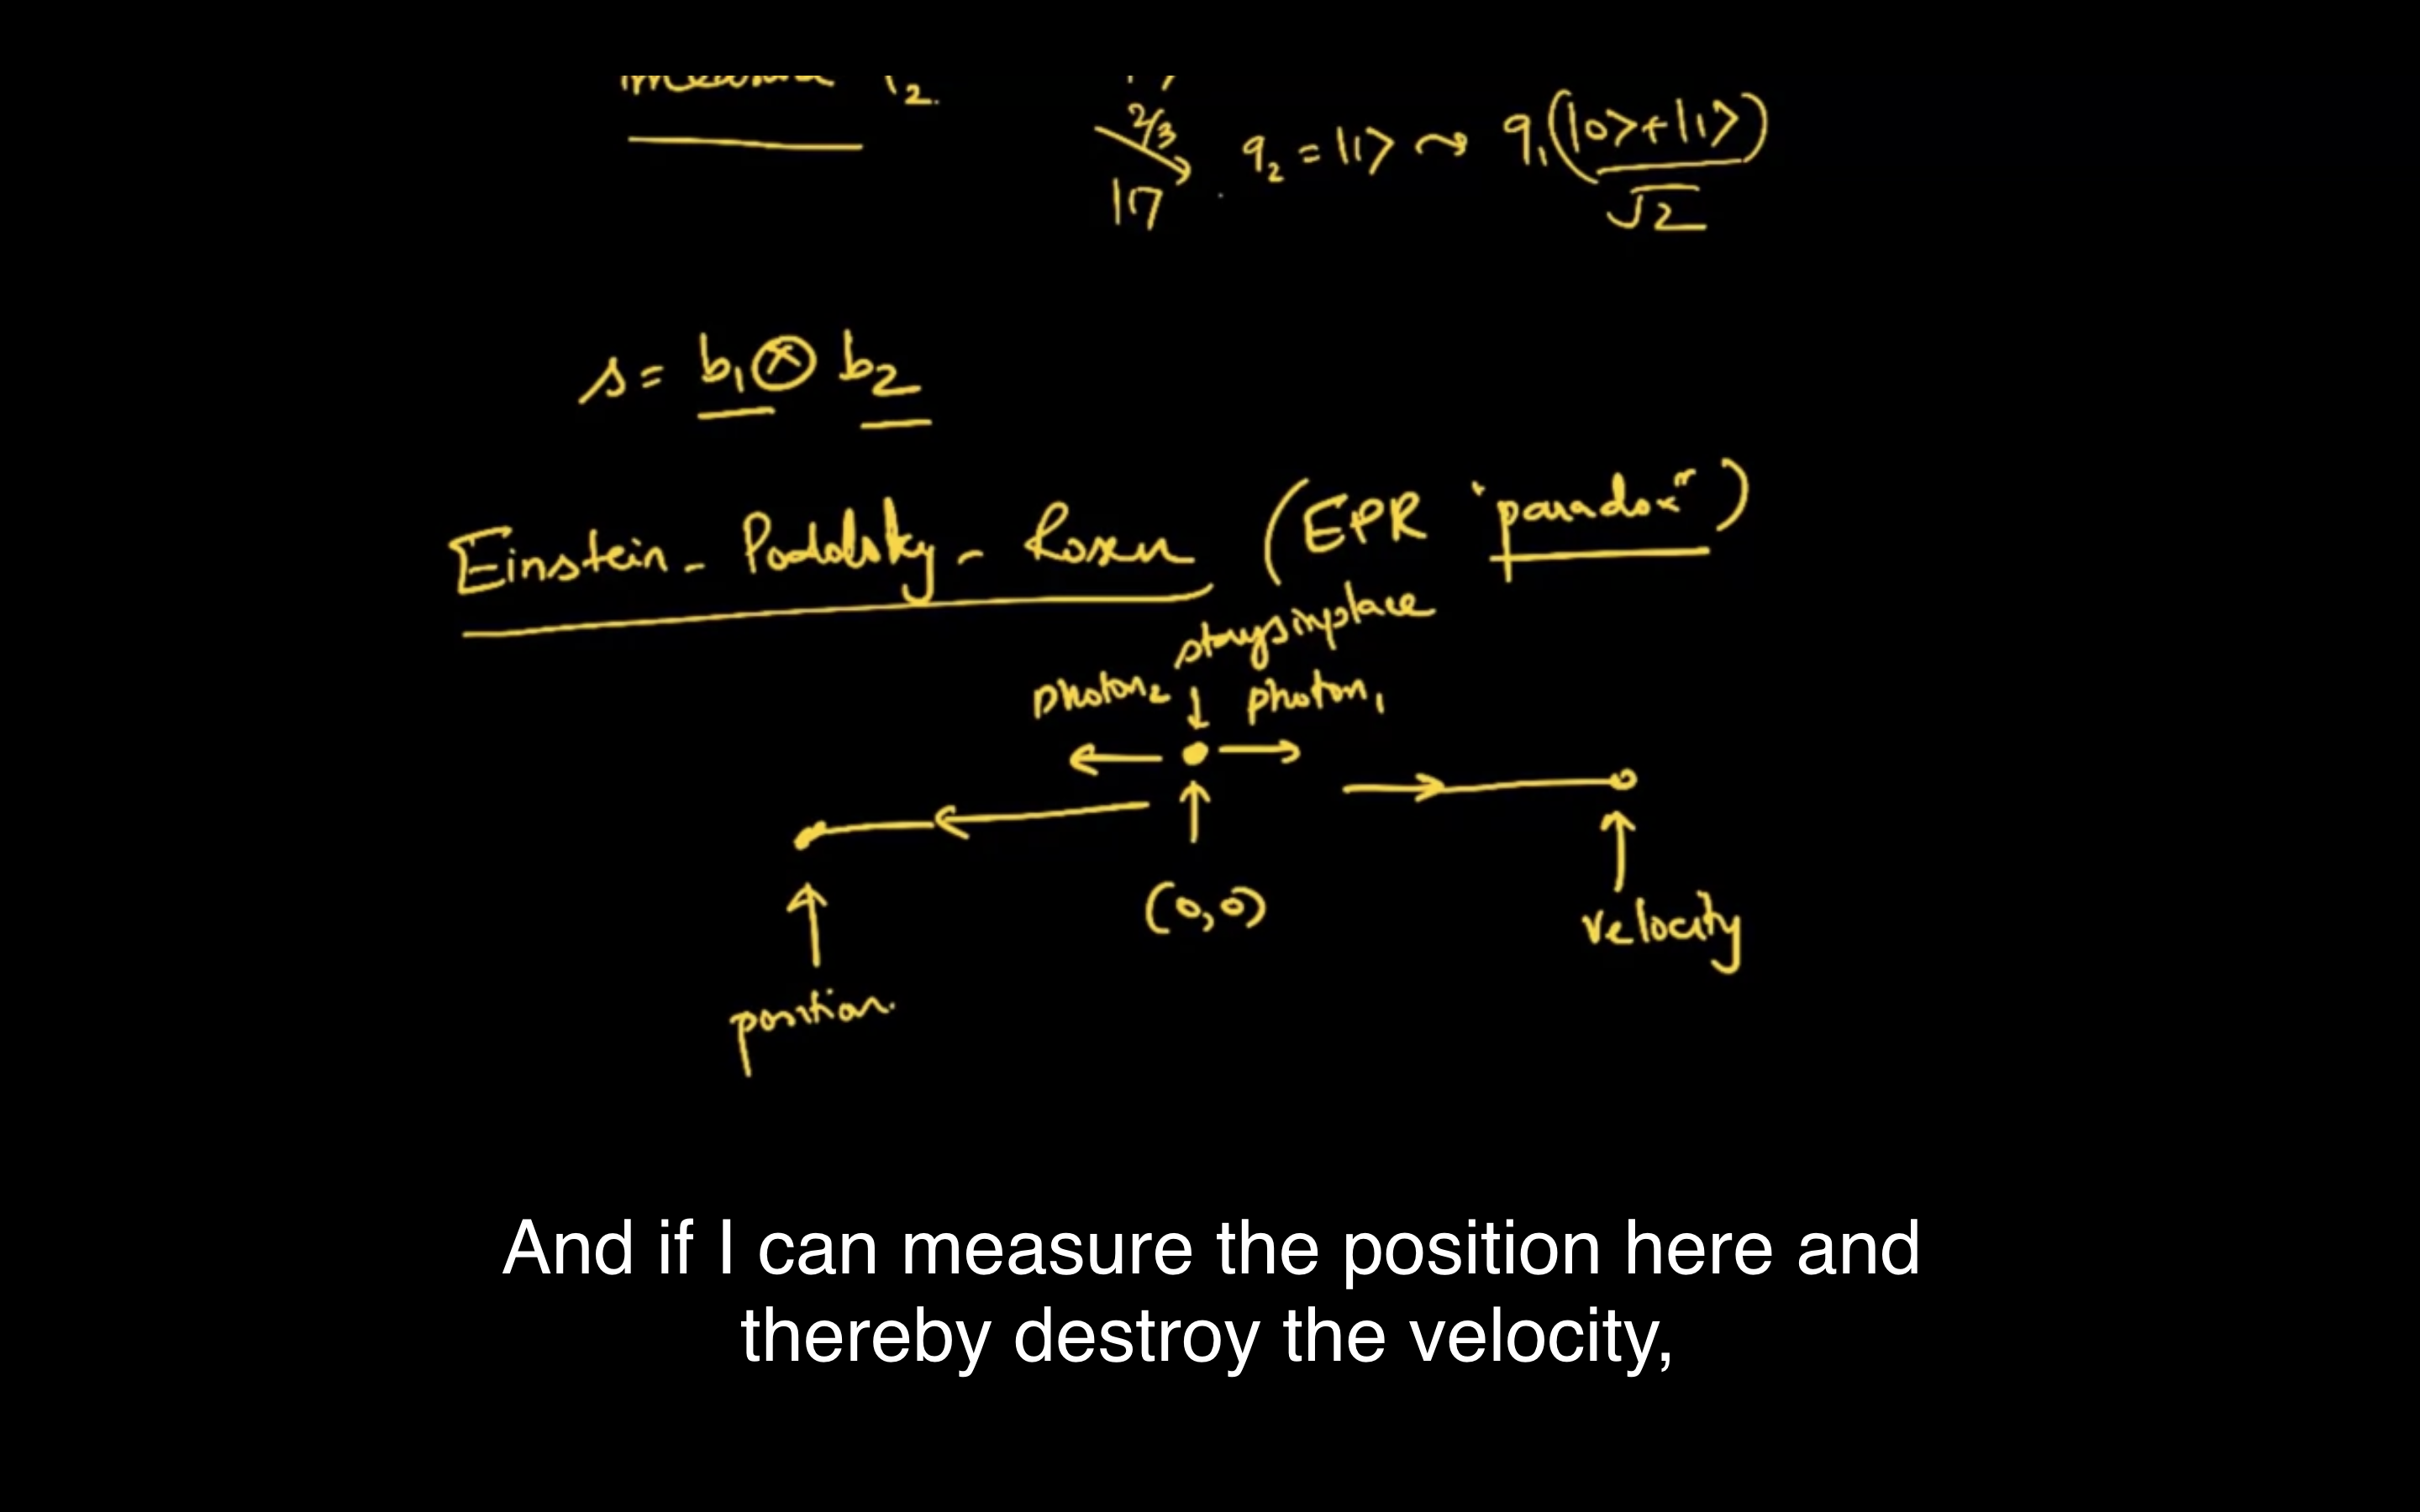 2.
2/3
|1⟩ . q₂ = |1⟩ ⤳ q₁(|0⟩+|1⟩)/√2
s = b₁ ⊗ b₂
Einstein - Podolsky - Rosen (EPR "paradox")
stays in place
photon₂ ↓ photon₁
(0,0)
velocity
position.
And if I can measure the position here and
thereby destroy the velocity,